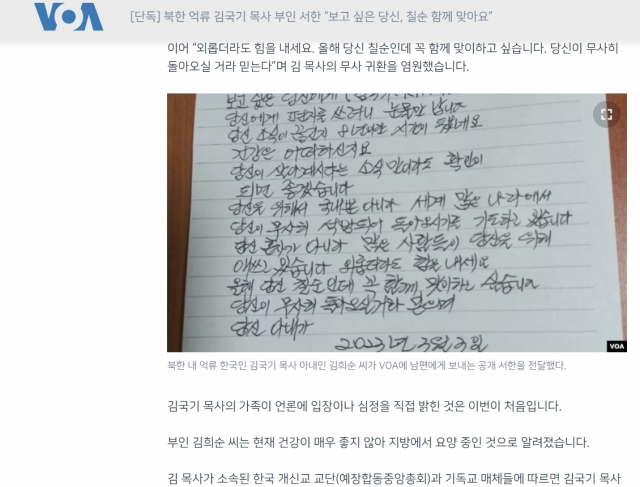 VOA
[단독] 북한 억류 김국기 목사 부인 서한 “보고 싶은 당신, 칠순 함께 맞아요”
이어 “외롭더라도 힘을 내세요. 올해 당신 칠순인데 꼭 함께 맞이하고 싶습니다. 당신이 무사히
돌아오실 거라 믿는다”며 김 목사의 무사 귀환을 염원했습니다.
보고 싶은 당신에게
당신에게 편지를 쓰려니 눈물만 납니다
당신 소식이 끊긴지 8년이란 시간이 됐네요
건강은 어떠하신지요
당신이 살아계시다는 소식 만이라도 확인이
되면 좋겠습니다
당신을 위해서 국내뿐 아니라 세계 많은 나라에서
당신이 무사히 석방되어 돌아오시기를 기도하고 있습니다
당신 혼자가 아니라 많은 사람들이 당신을 위해
애쓰고 있습니다 외롭더라도 힘을 내세요
올해 당신 칠순인데 꼭 함께 맞이하고 싶습니다
당신이 무사히 돌아오실거라 믿으며
당신 아내가
2023년 3월 3일
VOA
북한 내 억류 한국인 김국기 목사 아내인 김희순 씨가 VOA에 남편에게 보내는 공개 서한을 전달했다.
김국기 목사의 가족이 언론에 입장이나 심정을 직접 밝힌 것은 이번이 처음입니다.
부인 김희순 씨는 현재 건강이 매우 좋지 않아 지방에서 요양 중인 것으로 알려졌습니다.
김 목사가 소속된 한국 개신교 교단(예장합동중앙총회)과 기독교 매체들에 따르면 김국기 목사